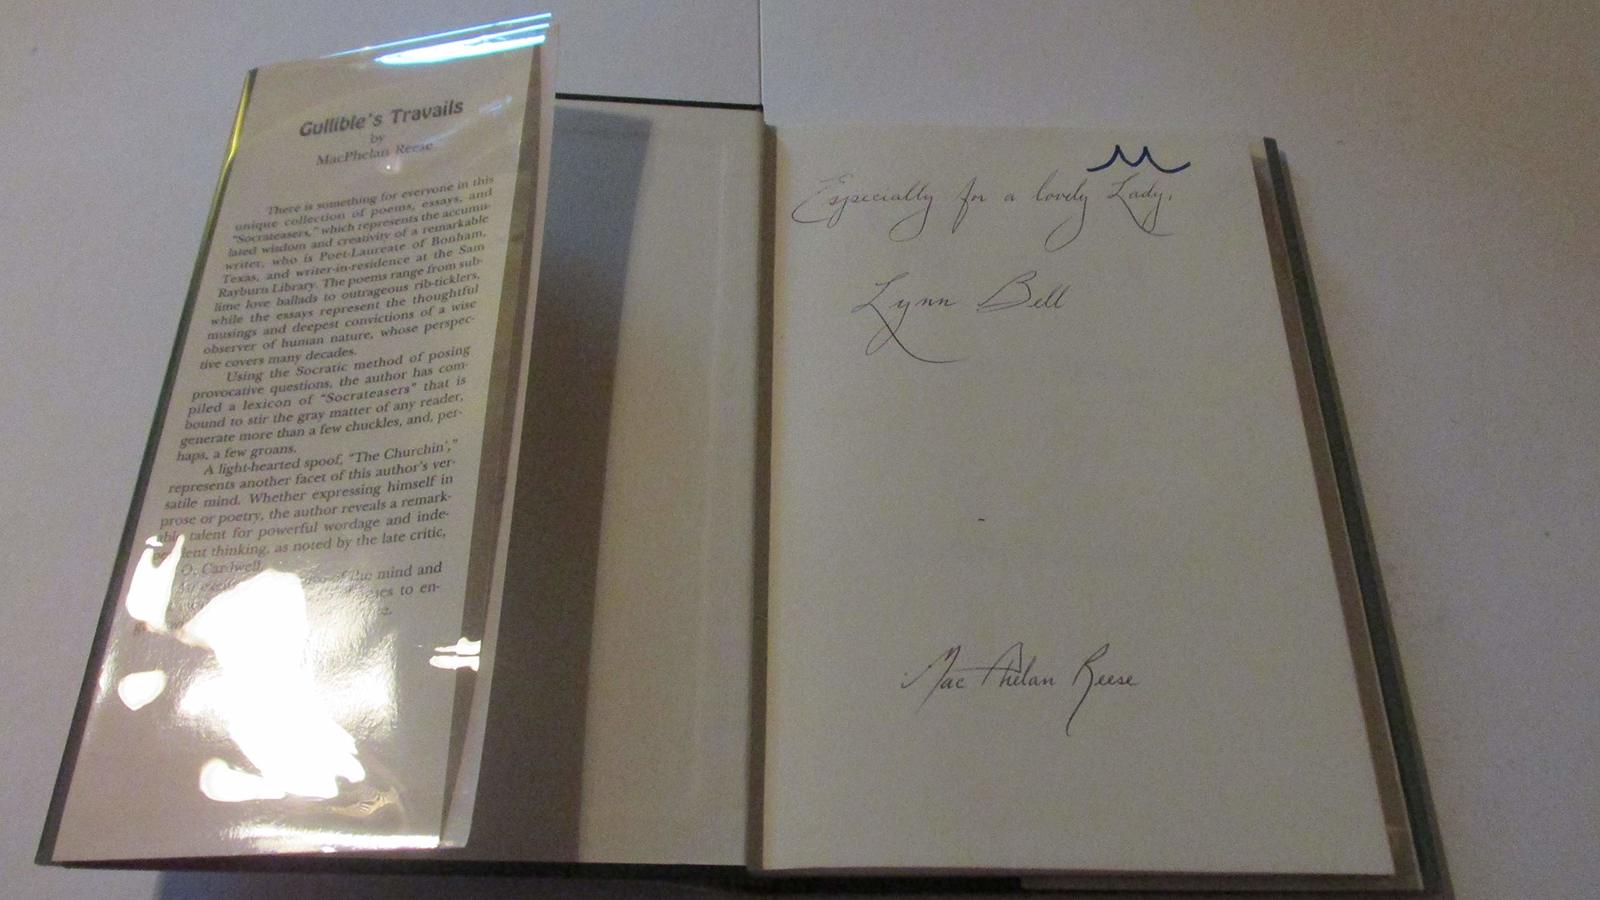 Gullible's Travails
by
MacPhelan Reese
There is something for everyone in this
unique collection of poems, essays, and
"Socrateasers," which represents the accumu-
lated wisdom and creativity of a remarkable
writer, who is Poet-Laureate of Bonham,
Texas, and writer-in-residence at the Sam
Rayburn Library. The poems range from sub-
lime love ballads to outrageous rib-ticklers,
while the essays represent the thoughtful
musings and deepest convictions of a wise
observer of human nature, whose perspec-
tive covers many decades.
Using the Socratic method of posing
provocative questions, the author has com-
piled a lexicon of "Socrateasers" that is
bound to stir the gray matter of any reader,
generate more than a few chuckles, and, per-
haps, a few groans.
A light-hearted spoof, "The Churchin',"
represents another facet of this author's ver-
satile mind. Whether expressing himself in
prose or poetry, the author reveals a remark-
able talent for powerful wordage and inde-
pendent thinking, as noted by the late critic,
O. Cardwell.
of the mind and
to en-
Especially for a lovely Lady,
Lynn Bell
Mac Phelan Reese